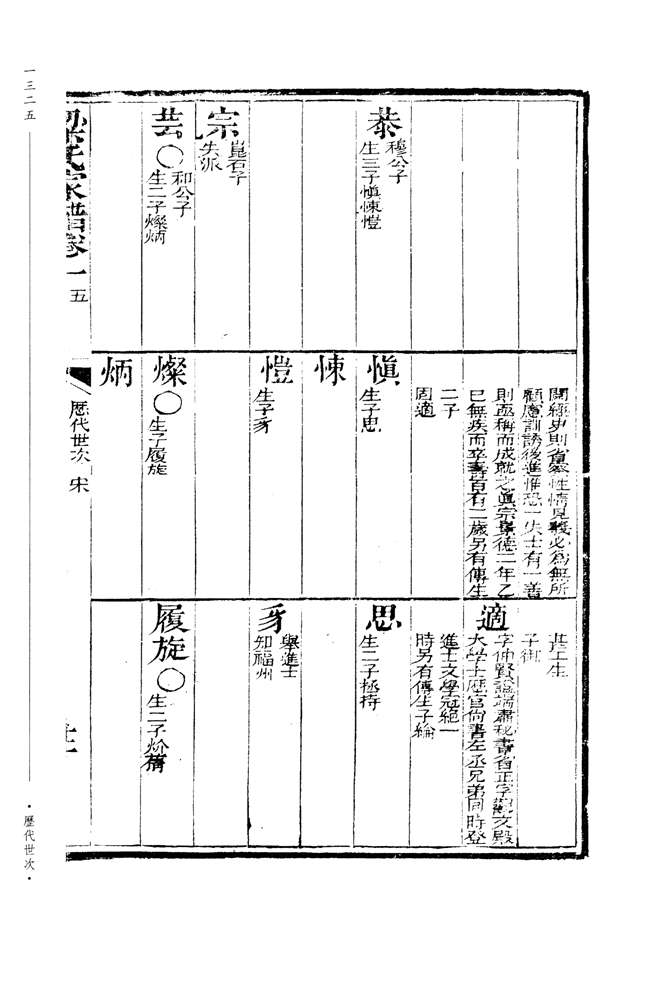 恭
穆公子
生三子愼悚愷
宗
崑石子
失派
芸○
和公子
生二子燦炳
閱經史則省察性情見義必為無所
顧慮訓誘後進惟恐一失士有一善
則亟稱而成就之眞宗景德二年乙
巳無疾而卒壽百有二歲另有傳生
二子
固適
愼
生子思
悚
愷
生子豸
燦○
生子履旋
炳
進士生
子御
適
字仲賢諡端肅秘書省正字觀文殿
大學士歷官尙書左丞兄弟同時登
進士文學冠絕一
時另有傳生子綸
思
生二子拯持
豸
舉進士
知福州
履旋○
生二子炌
梁氏家譜卷一
五
歷代世次
宋
一三二五
·歷代世次·